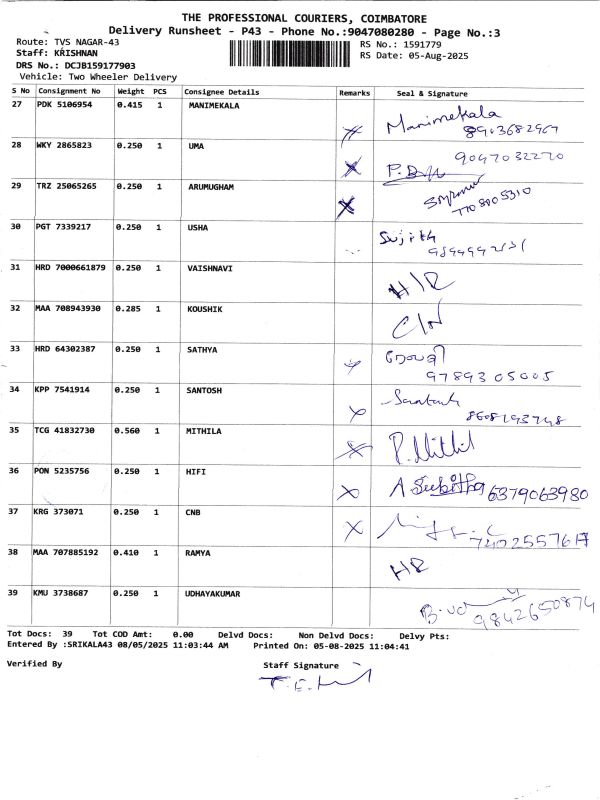 THE PROFESSIONAL COURIERS, COIMBATORE
Delivery Runsheet - P43 - Phone No.:9047080280 - Page No.:3
Route: TVS NAGAR-43
Staff: KRISHNAN
DRS No.: DCJB159177903
Vehicle: Two Wheeler Delivery
RS No.: 1591779
RS Date: 05-Aug-2025
S No Consignment No Weight PCS Consignee Details Remarks Seal & Signature
27 PDK 5106954 0.415 1 MANIMEKALA
Manimekala
8903682967
28 WKY 2865823 0.250 1 UMA
9047032270
29 TRZ 25065265 0.250 1 ARUMUGHAM
30 PGT 7339217 0.250 1 USHA
Sujith
31 HRD 7000661879 0.250 1 VAISHNAVI
H/R
32 MAA 708943930 0.285 1 KOUSHIK
C/N
33 HRD 64302387 0.250 1 SATHYA
9789305005
34 KPP 7541914 0.250 1 SANTOSH
Santosh
8608193748
35 TCG 41832730 0.560 1 MITHILA
P. Mithil
36 PON 5235756 0.250 1 HIFI
6379063980
37 KRG 373071 0.250 1 CNB
7402557617
38 MAA 707885192 0.410 1 RAMYA
HR
39 KMU 3738687 0.250 1 UDHAYAKUMAR
9842650874
Tot Docs: 39 Tot COD Amt: 0.00 Delvd Docs: Non Delvd Docs: Delvy Pts:
Entered By :SRIKALA43 08/05/2025 11:03:44 AM Printed On: 05-08-2025 11:04:41
Verified By Staff Signature